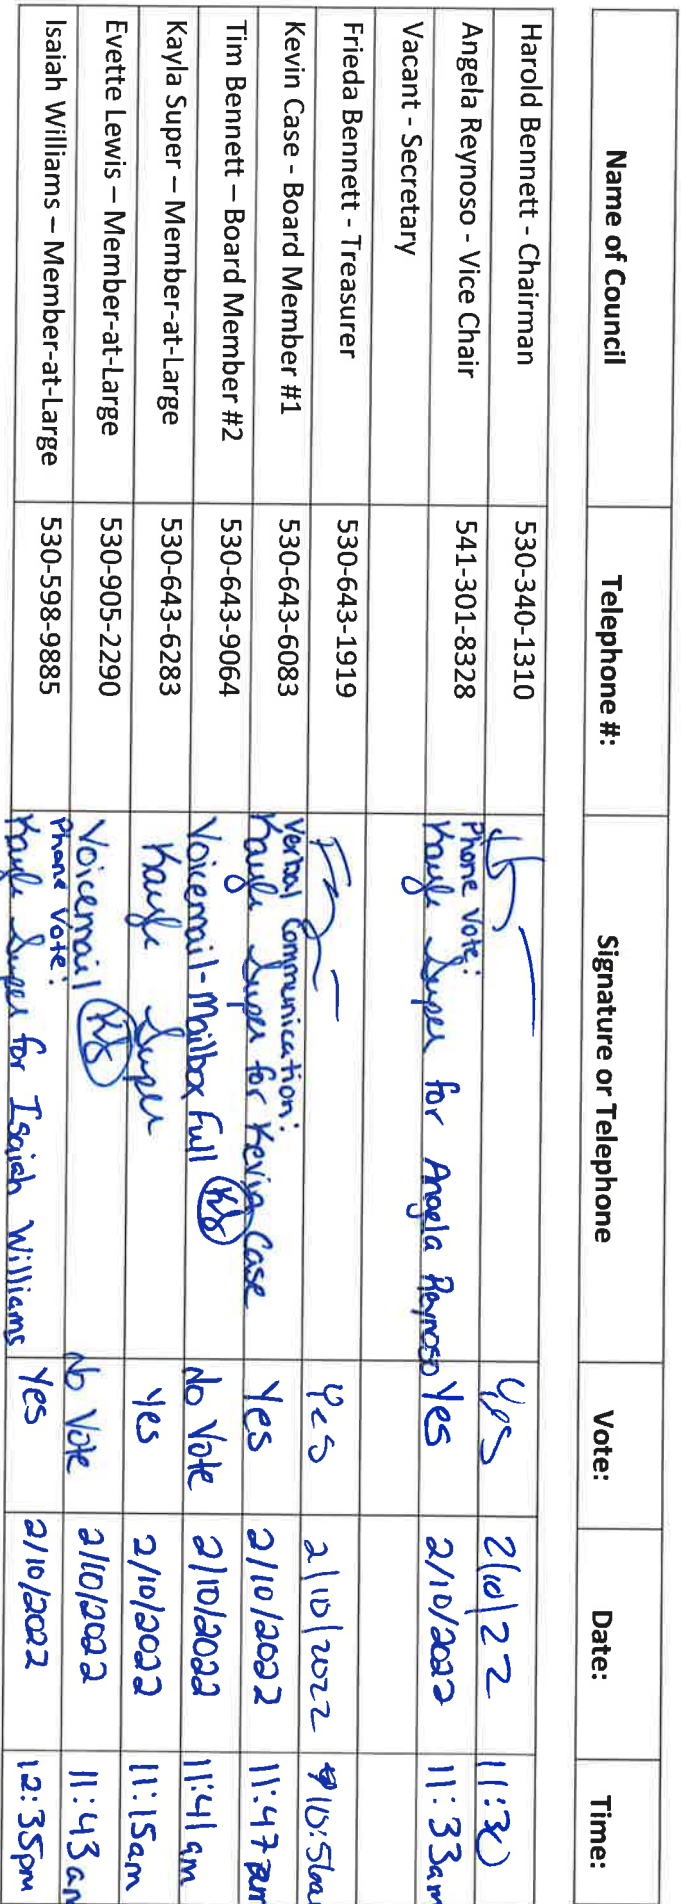 Name of Council Telephone #: Signature or Telephone Vote: Date: Time:
Harold Bennett - Chairman 530-340-1310 Yes 2/10/22 11:30
Phone Vote:
Angela Reynoso - Vice Chair 541-301-8328 Kayla Super for Angela Reynoso Yes 2/10/2022 11:33am
Vacant - Secretary
Frieda Bennett - Treasurer 530-643-1919 Yes 2/10/2022
Verbal Communication:
Kevin Case - Board Member #1 530-643-6083 Kayla Super for Kevin Case Yes 2/10/2022 11:47am
Tim Bennett – Board Member #2 530-643-9064 Voicemail-Mailbox Full KS No Vote 2/10/2022 11:41am
Kayla Super – Member-at-Large 530-643-6283 Kayla Super Yes 2/10/2022 11:15am
Evette Lewis – Member-at-Large 530-905-2290 Voicemail KS No Vote 2/10/2022 11:43am
Phone Vote:
Isaiah Williams – Member-at-Large 530-598-9885 Kayla Super for Isaiah Williams Yes 2/10/2022 12:35pm